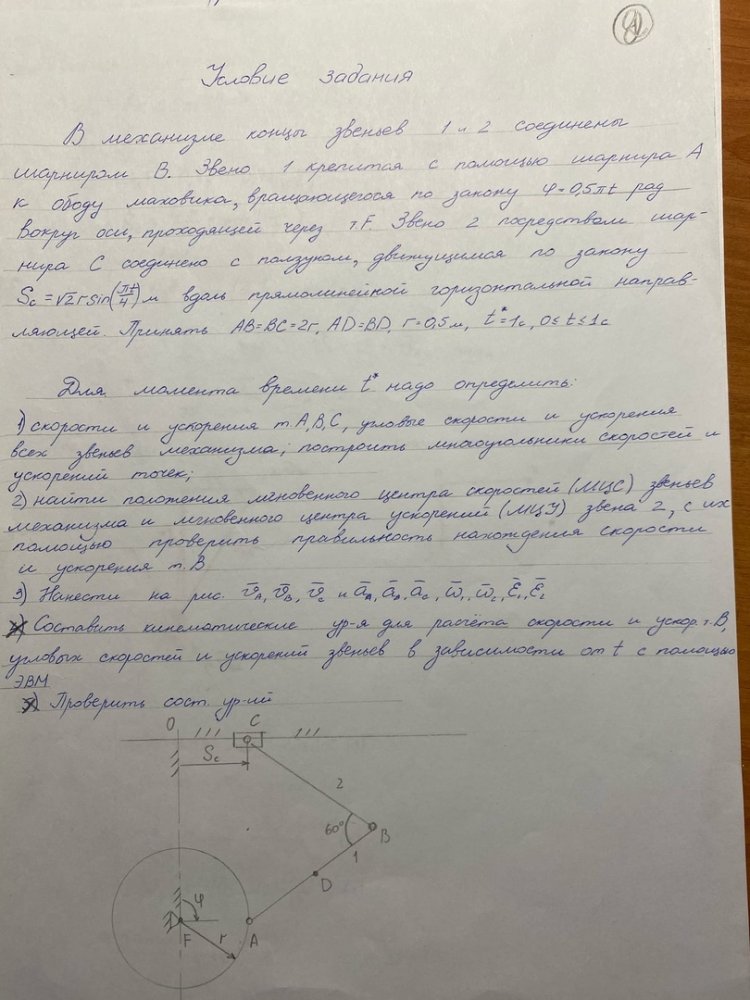 Условие задания
В механизме концы звеньев 1 и 2 соединены
шарниром B. Звено 1 крепится с помощью шарнира A
к ободу маховика, вращающегося по закону φ=0,5πt рад
вокруг оси, проходящей через т.F. Звено 2 посредством шар-
нира C соединено с ползуном, движущимся по закону
Sc=√2 r sin(πt/4) м вдоль прямолинейной горизонтальной направ-
ляющей. Принять AB=BC=2r, AD=BD, r=0,5 м, t*=1с, 0≤t≤1с
Для момента времени t* надо определить:
1) скорости и ускорения т.A,B,C, угловые скорости и ускорения
всех звеньев механизма; построить многоугольники скоростей и
ускорений точек;
2) найти положения мгновенного центра скоростей (МЦС) звеньев
механизма и мгновенного центра ускорений (МЦУ) звена 2, с их
помощью проверить правильность нахождения скорости
и ускорения т.B
3) Нанести на рис. v̄A, v̄B, v̄C и āA, āB, āC, ω̄1, ω̄2, ε̄1, ε̄2
Составить кинематические ур-я для расчёта скорости и ускор. т.B,
угловых скоростей и ускорений звеньев в зависимости от t с помощью
ЭВМ
Проверить сост. ур-ий
O C
Sc
2
60°
B
1
D
φ
F r A